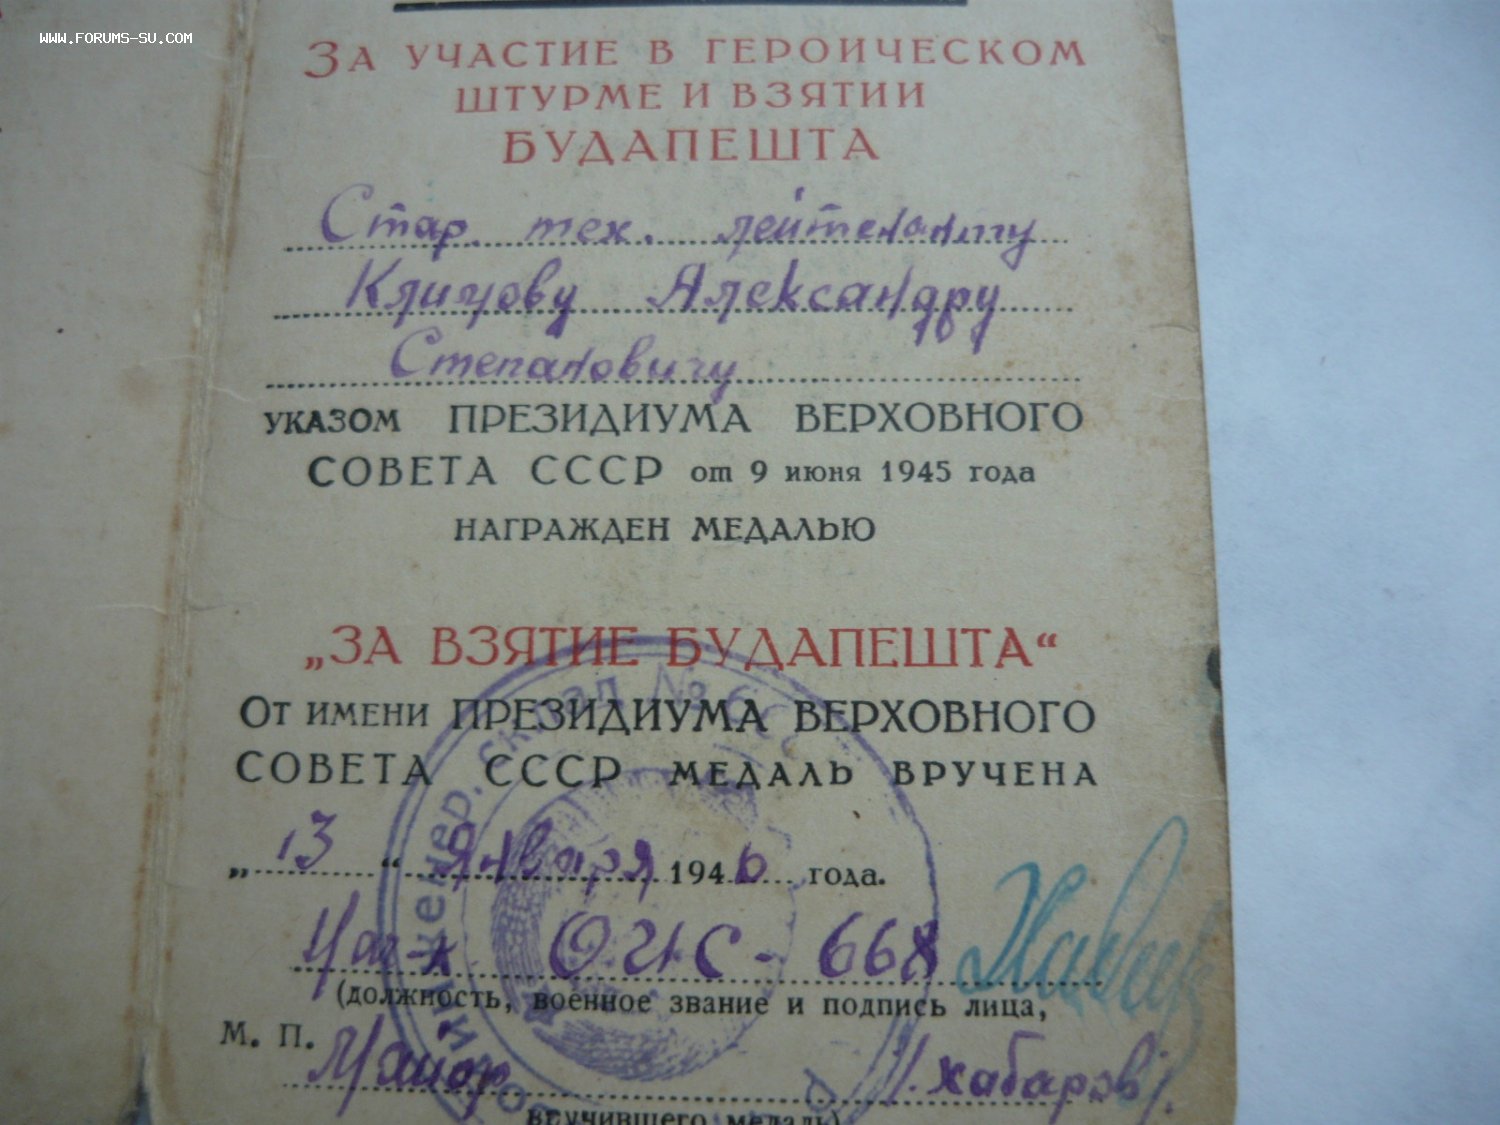 WWW.FORUMS-SU.COM
ЗА УЧАСТИЕ В ГЕРОИЧЕСКОМ
ШТУРМЕ И ВЗЯТИИ
БУДАПЕШТА
Стар. тех. лейтенанту
Климову Александру
Степановичу
УКАЗОМ ПРЕЗИДИУМА ВЕРХОВНОГО
СОВЕТА СССР от 9 июня 1945 года
НАГРАЖДЕН МЕДАЛЬЮ
„ЗА ВЗЯТИЕ БУДАПЕШТА“
ОТ ИМЕНИ ПРЕЗИДИУМА ВЕРХОВНОГО
СОВЕТА СССР МЕДАЛЬ ВРУЧЕНА
„13“ Января 1946 года.
Нач-к ОИС-668
(должность, военное звание и подпись лица,
М. П. Майор Хабаров
вручившего медаль)
инженер. склад №